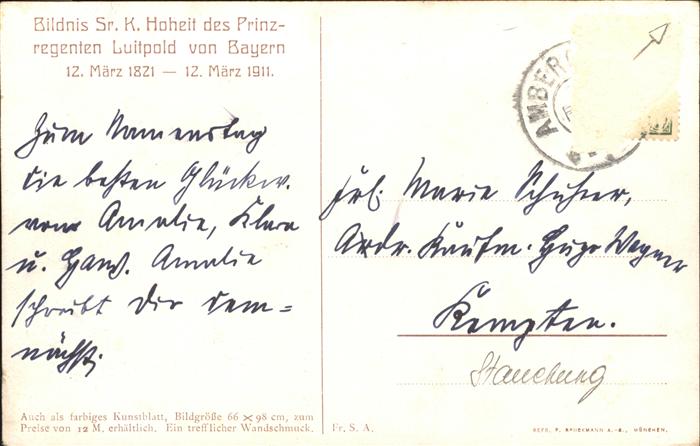 Bildnis Sr. K. Hoheit des Prinz-
regenten Luitpold von Bayern
12. März 1821 — 12. März 1911.
Zum Namenstag
die besten Glückw.
von Amalie, Klara
u. Hans. Amalie
schreibt Dir dem=
nächst.
Auch als farbiges Kunstblatt, Bildgröße 66 × 98 cm, zum
Preise von 12 M. erhältlich. Ein trefflicher Wandschmuck.
AMBERG
Frl. Marie Schuhier,
Adr. Kaufm. Hugo Wagner
Kempten.
Stauchung
Fr. S. A.
REPR. F. BRUCKMANN A.-G., MÜNCHEN.